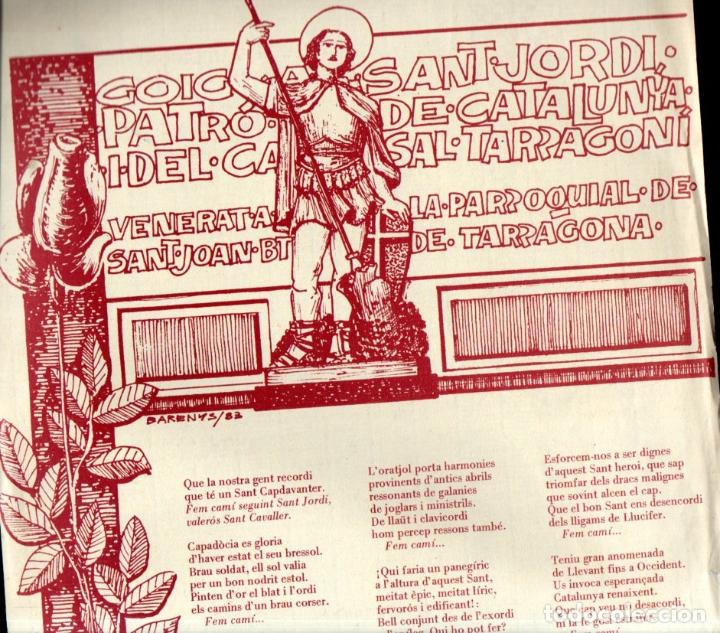 GOIGS A SANT·JORDI,
·PATRÓ· DE·CATALUNYA·
·I·DEL·CASAL·TARRAGONÍ
VENERAT·A· LA·PARROQUIAL·DE·
SANT·JOAN·BT DE·TARRAGONA·
BARENYS/83
Que la nostra gent recordi
que té un Sant Capdavanter.
Fem camí seguint Sant Jordi,
valerós Sant Cavaller.
Capadòcia es gloria
d'haver estat el seu bressol.
Brau soldat, ell sol valia
per un bon nodrit estol.
Pinten d'or el blat i l'ordi
els camins d'un brau corser.
Fem camí...
L'oratjol porta harmonies
provinents d'antics abrils
ressonants de galanies
de joglars i ministrils.
De llaüt i clavicordi
hom percep ressons també.
Fem camí...
¡Qui faria un panegíric
a l'altura d'aquest Sant,
meitat èpic, meitat líric,
fervorós i edificant!:
Bell conjunt des de l'exordi
Qui ho pot fer?
Esforcem-nos a ser dignes
d'aquest Sant heroi, que sap
triomfar dels dracs malignes
que sovint alcen el cap.
Que el bon Sant ens desencordi
dels lligams de Llucifer.
Fem camí...
Teniu gran anomenada
de Llevant fins a Occident.
Us invoca esperançada
Catalunya renaixent.
Que l'an veu ni desacordi,
Fem camí...
todocoleccion